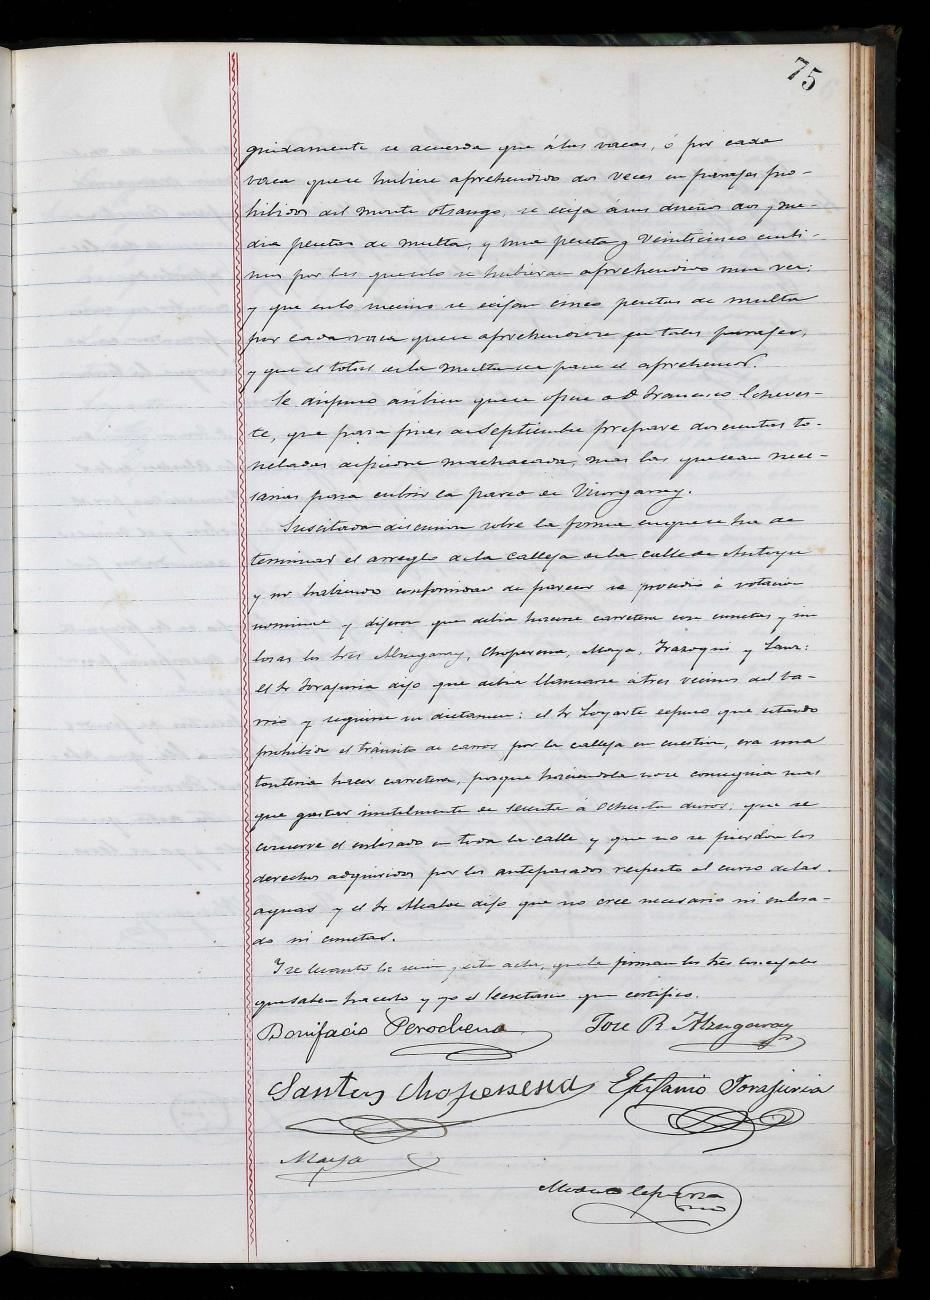 75
guidamente se acuerda que á las vacas, ó por cada
vaca que se hubiere aprehendido dos veces en parajes pro-
hibidos del monte otsango, se exija á sus dueños dos y me-
dia pesetas de multa, y una peseta y veinticinco centi-
mos por las que solo se hubieran aprehendido una vez;
y que en lo sucesivo se exijan cinco pesetas de multa
por cada vaca que se aprehendiere en tales parajes,
y que el total de la multa sea para el aprehensor.
Se dispuso asi bien que se oficie a D. Francisco Echeves-
te, que para fines de Septiembre prepare doscientas to-
neladas de piedra machacada, mas las que sean nece-
sarias para cubrir la pared de
Suscitada discusion sobre la forma en que se ha de
terminar el arreglo de la calleja de la calle de
y no habiendo conformidad de parecer se procedió á votacion
nominal y dijeron que debia hacerse carretera con cunetas y sin
losas los Sres Alzugaray, Choperena, Maya, Irazoqui y Sanz:
el Sr Torajuria dijo que debia llamarse á tres vecinos del ba-
rrio y seguirse su dictamen: el Sr Loyarte expuso que estando
prohibido el tránsito de carros por la calleja en cuestion, era una
tonteria hacer carretera, porque haciendola no se conseguia mas
que gastar inutilmente de setenta á ochenta duros; que se
conserve el enlosado en toda la calle y que no se pierdan los
derechos adquiridos por los antepasados respecto al curso de las
aguas y el Sr Alcalde dijo que no cree necesario ni enlosa-
do ni cunetas.
Y se levantó la sesion y esta acta, que la firman los Sres concejales
que saben hacerlo y yo el Secretario que certifico.
Bonifacio Perochena Jose R. Alzugaray
Santos Choperena Epifanio Torajuria
Maya